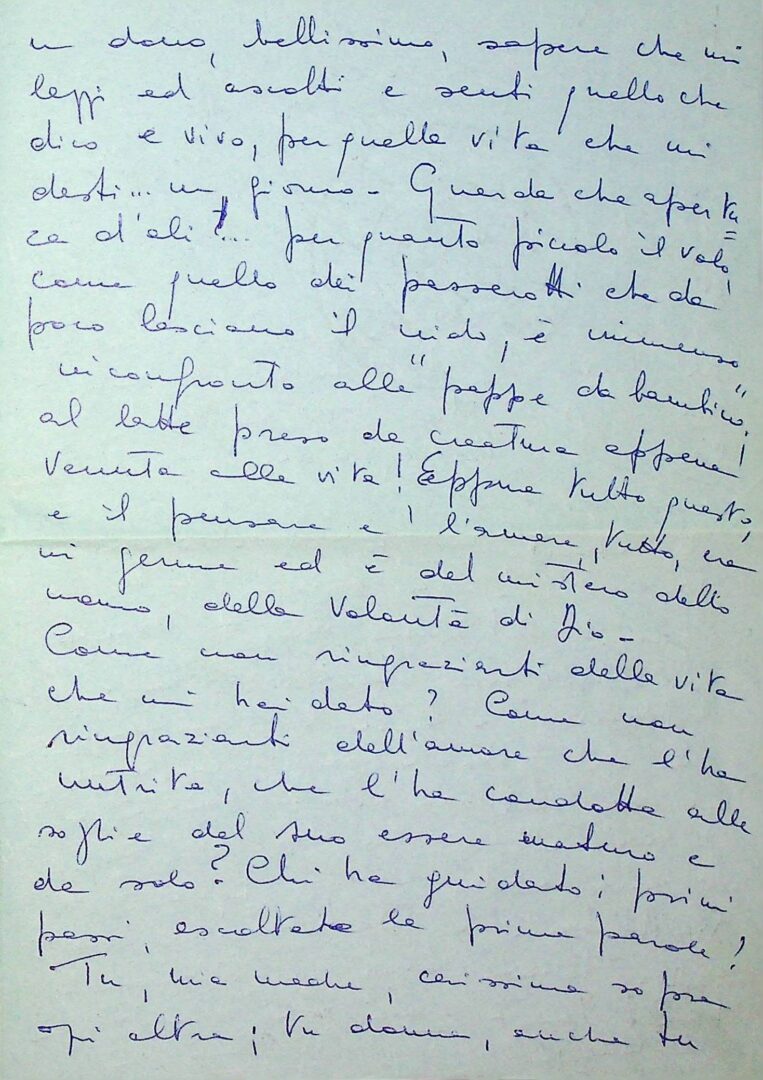 un dono, bellissimo, sapere che mi
leggi ed ascolti e senti quello che
dico e vivo, per quella vita che mi
desti... un giorno - Guarda che apertu
ra d'ali!... per quanto piccolo il volo,
come quello dei passerotti che da
poco lasciano il nido, è immenso
in confronto alle "pappe da bambino",
al latte preso da creatura appena
venuta alla vita! Eppure tutto questo,
e il pensare e l'amare, tutto, era
in germe ed è del mistero dello
uomo, della Volontà di Dio -
Come non ringraziarti della vita
che mi hai dato? Come non
ringraziarti dell'amore che l'ha
nutrita, che l'ha condotta alle
soglie del suo essere maturo e
da solo? Chi ha guidato i primi
passi, ascoltato le prime parole!
Tu, mia madre, carissima sopra
ogni altra; tu donna, anche tu